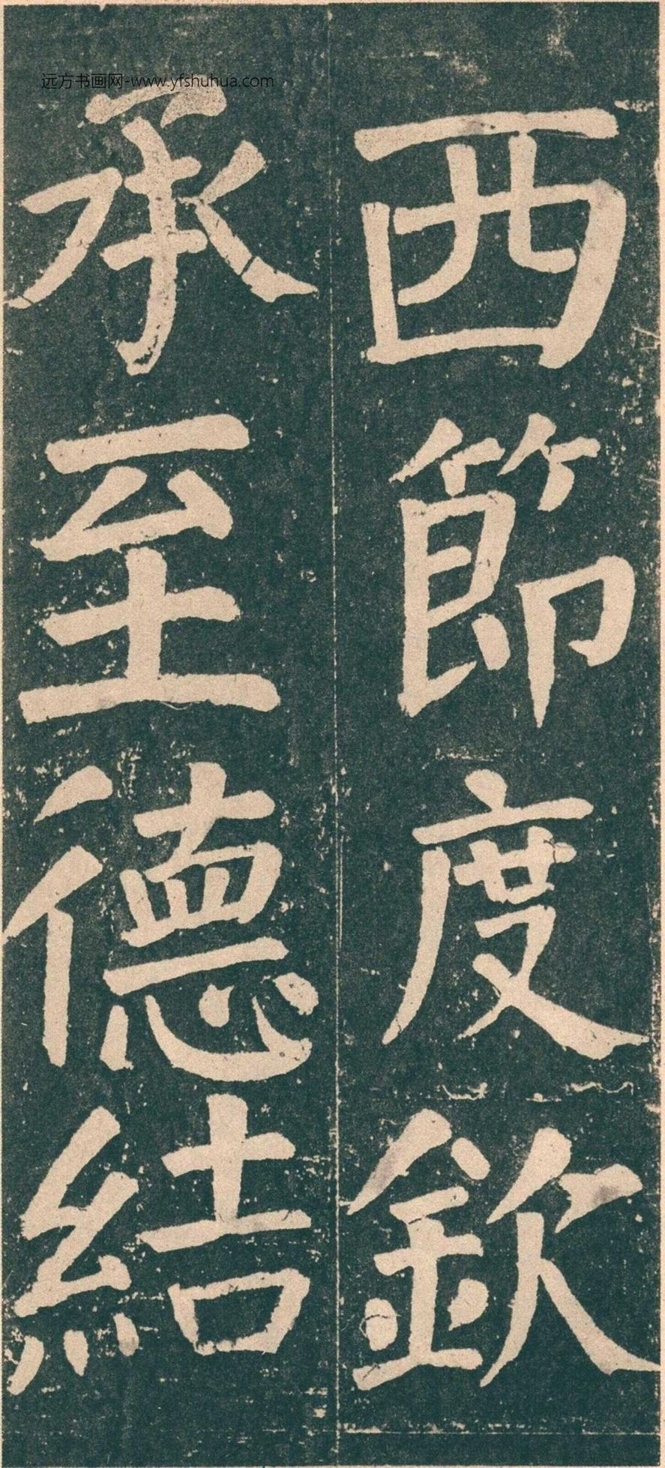 远方书画网-www.yfshuhua.com
西節度欽
承至德結